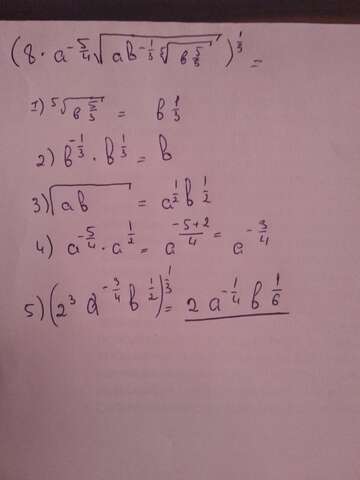 (8 · a^{-\frac{5}{4}} \sqrt{ab^{-\frac{1}{3}} \sqrt[5]{b^{\frac{5}{3}}}})^{\frac{1}{3}} =
1) \sqrt[5]{b^{\frac{5}{3}}} = b^{\frac{1}{3}}
2) b^{-\frac{1}{3}} · b^{\frac{1}{3}} = b
3) \sqrt{ab} = a^{\frac{1}{2}} b^{\frac{1}{2}}
4) a^{-\frac{5}{4}} · a^{\frac{1}{2}} = a^{\frac{-5+2}{4}} = a^{-\frac{3}{4}}
5) (2^3 a^{-\frac{3}{4}} b^{\frac{1}{2}})^{\frac{1}{3}} = 2 a^{-\frac{1}{4}} b^{\frac{1}{6}}